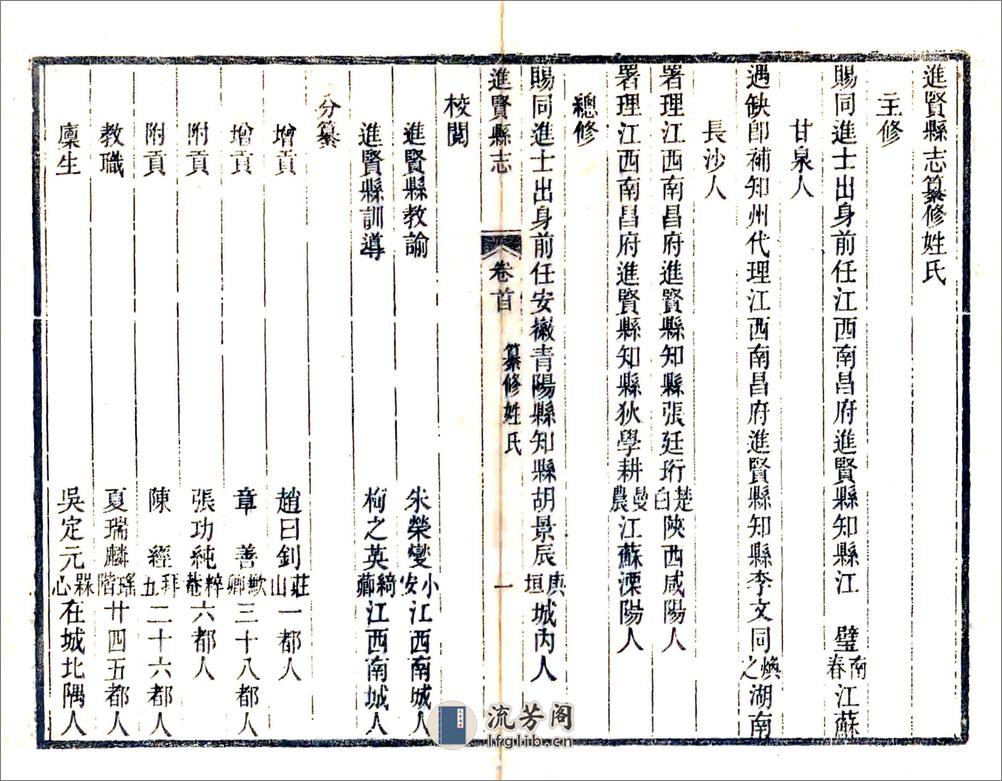 進賢縣志纂修姓氏
主修
賜同進士出身前任江西南昌府進賢縣知縣江　璧南春江蘇
甘泉人
遇缺卽補知州代理江西南昌府進賢縣知縣李文同煥之湖南
長沙人
署理江西南昌府進賢縣知縣張廷珩楚白陝西咸陽人
署理江西南昌府進賢縣知縣狄學耕曼農江蘇溧陽人
總修
賜同進士出身前任安徽青陽縣知縣胡景辰庚垣城內人
進賢縣志　卷首　纂修姓氏　一
校閱
進賢縣教諭　朱榮燮小安江西南城人
進賢縣訓導　梅之英綺蘭江西南城人
分纂
增貢　趙日釗莊山一都人
增貢　章　善歉卿三十八都人
附貢　張功純粹菴六都人
附貢　陳　經拜五二十六都人
教職　夏瑞麟瑤階廿四五都人
廩生　吳定元槑心在城北隅人
流芳阁
lfglib.cn